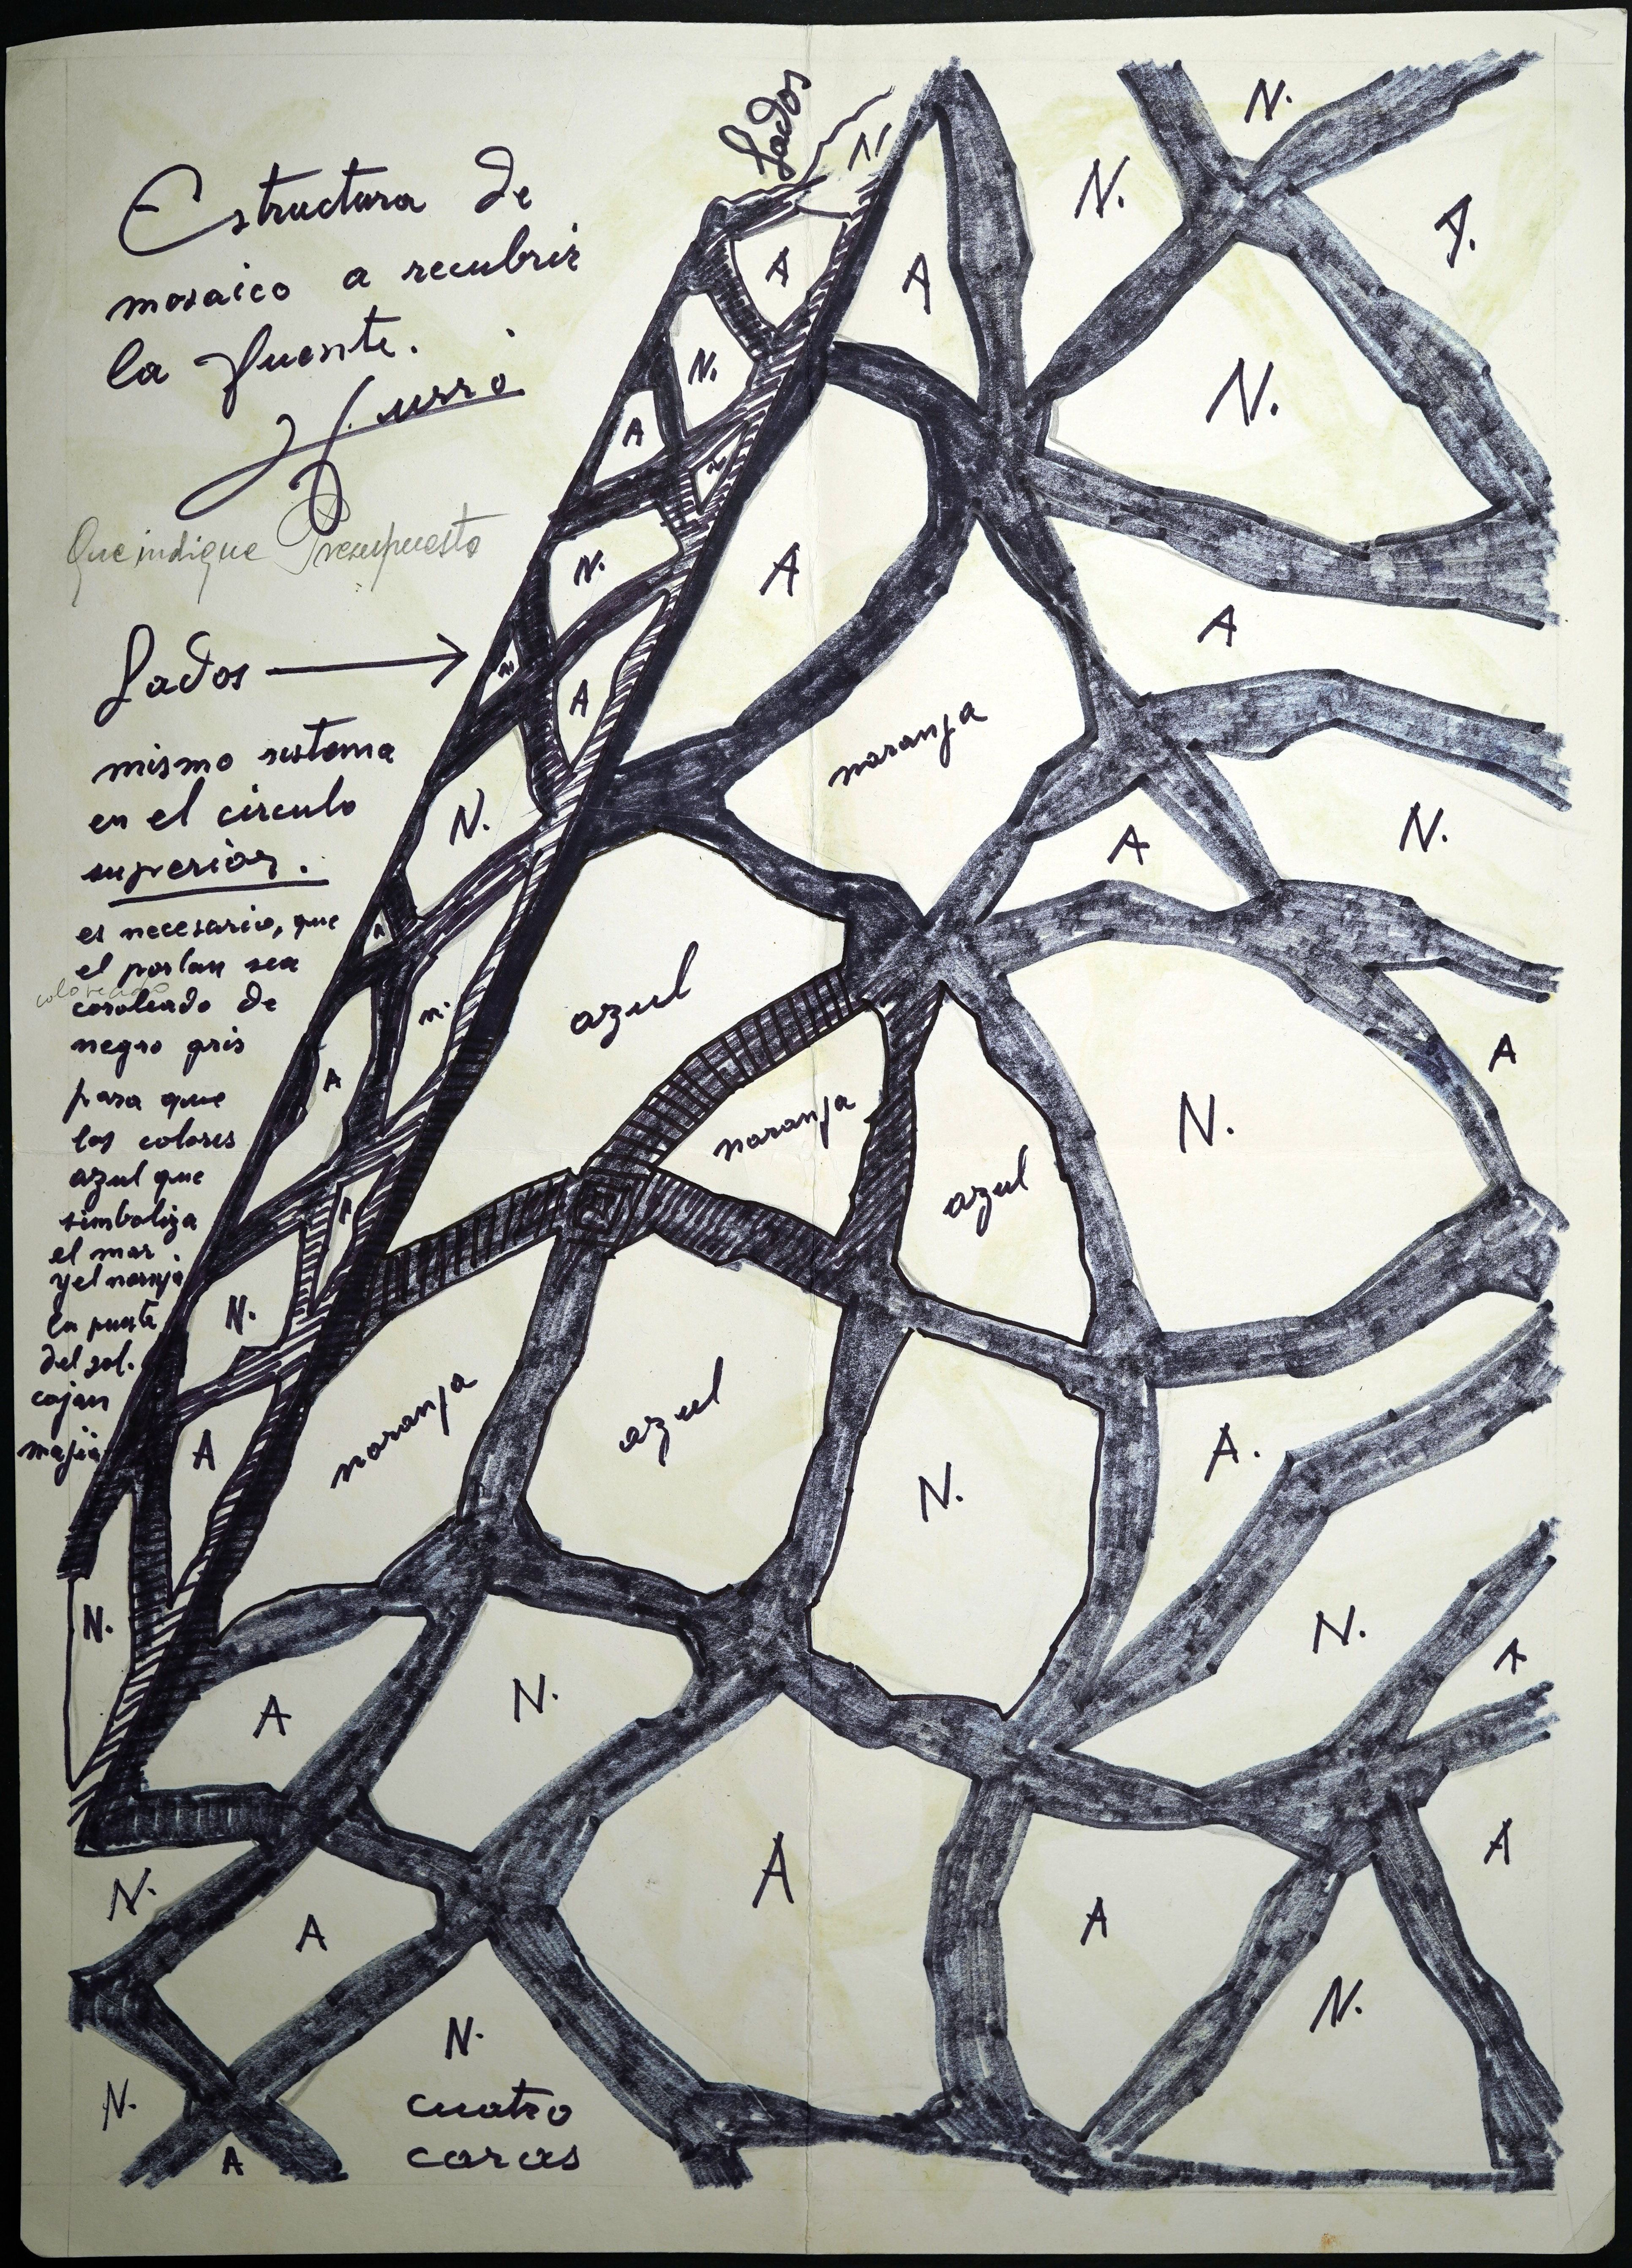 Lados
Estructura de
mosaico a recubrir
la fuente.
Que indique Presupuesto
Lados
mismo sistema
en el circulo
superior.
es necesario, que
el porlan sea
coloreado
coroleado de
negro gris
para que
los colores
azul que
simboliza
el mar
y el naranja
la puesta
del sol.
cojan
magia
N
N.
N.
A
A
A.
N.
N.
A
N.
A
A
N.
A
naranja
A
A
N.
N.
A
azul
n.
A
A
naranja
N.
azul
N.
naranja
azul
A.
A
N.
N.
N.
A
A
N.
A
A
A
N.
A
N.
N.
N.
cuatro
caras
A